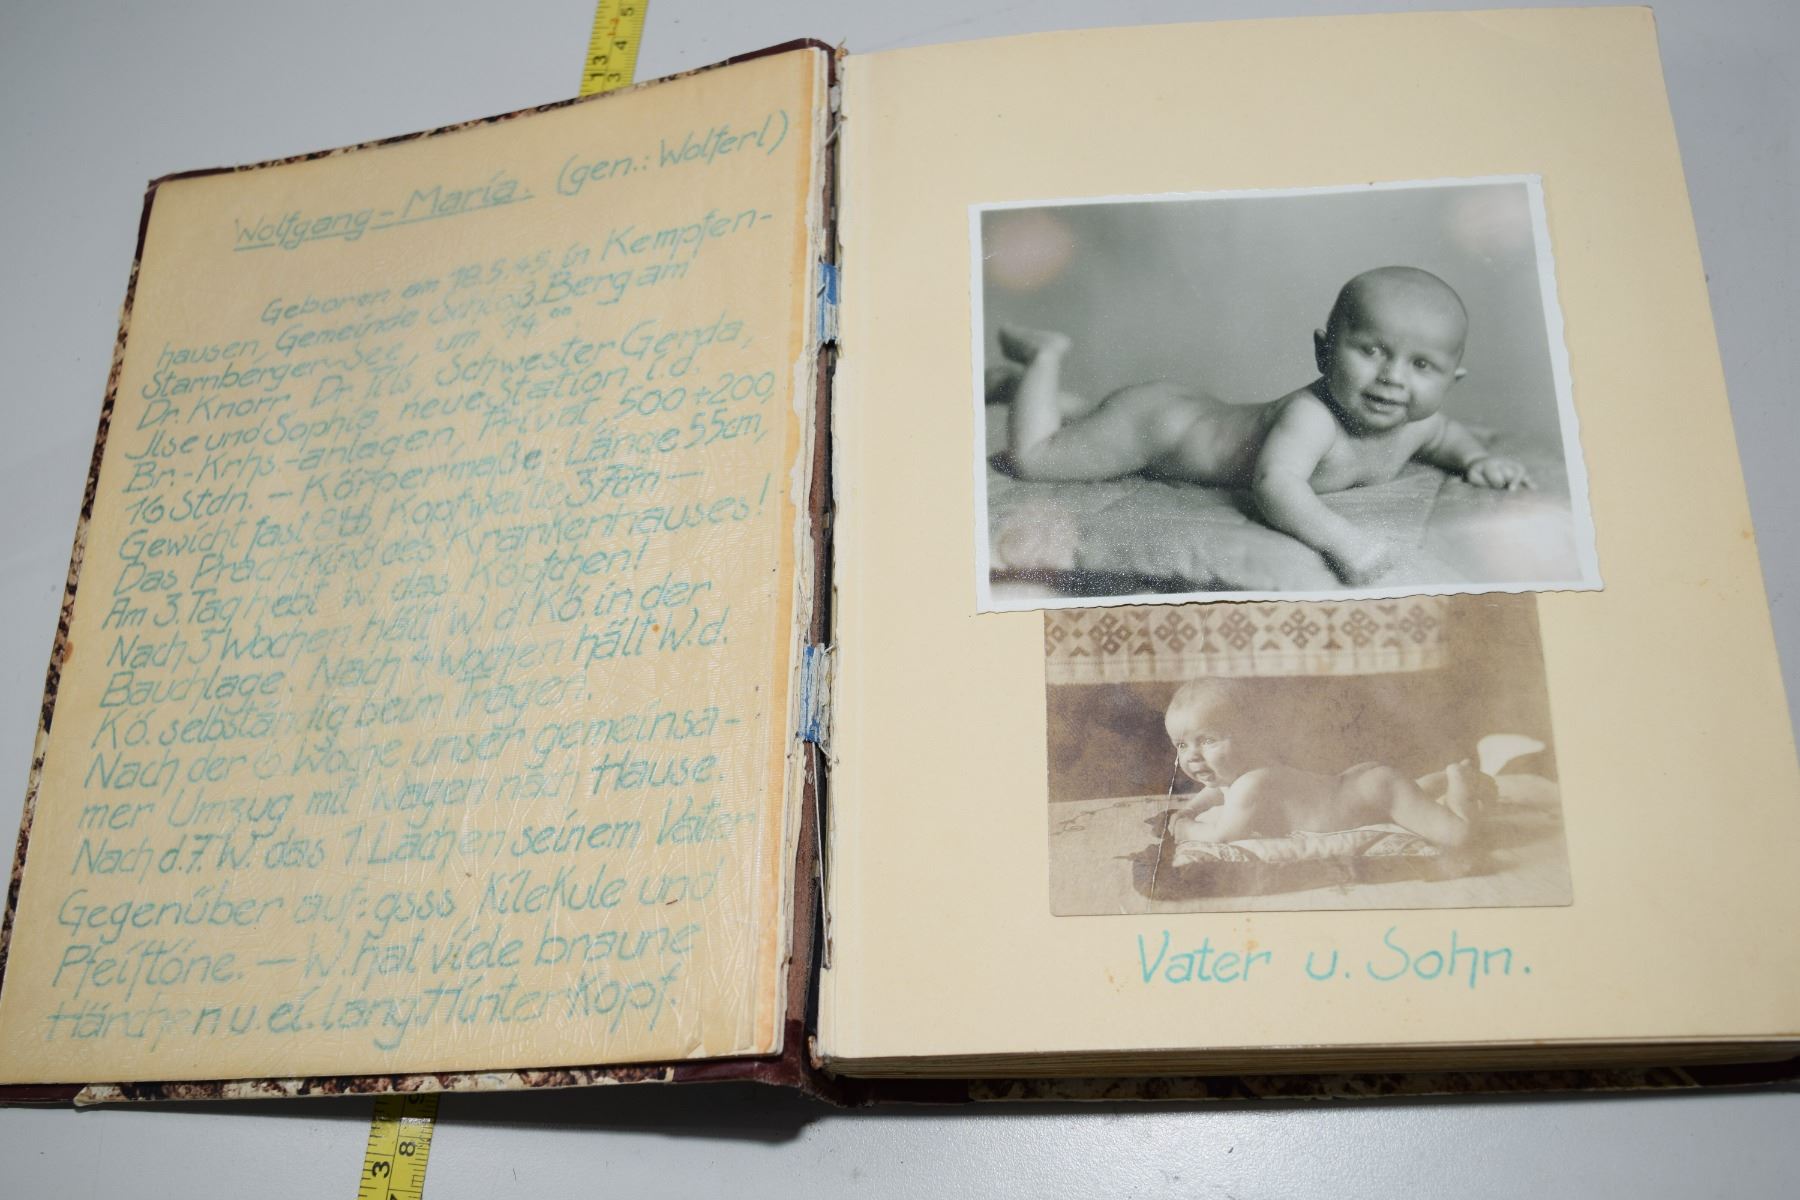 Wolfgang-Maria. (gen.: Wolferl)
Geboren am 18.5.49. in Kempfen-
hausen, Gemeinde Schloß Berg am
Starnberger-See, um 14⁰⁰
Dr. Knorr, Dr. Schwester Gerda,
Ilse und Sophie, neue Station l.d.
Br.-Krhs.-anlagen, Privat, 500+200,
16 Stdn. – Körpermaße: Länge 55cm,
Gewicht fast 8 Kopfweite 37cm –
Das Prachtkind des Krankenhauses!
Am 3. Tag hebt W. das Köpfchen!
Nach 3 Wochen hält W. d. Kö. in der
Bauchlage. Nach 4 Wochen hält W. d.
Kö. selbständig beim Tragen.
Nach der 6. Woche unser gemeinsa-
mer Umzug mit Wagen nach Hause.
Nach d. 7. W. das 1. Lächen seinem Vater
Gegenüber auf: gsss, Kilekule und
Pfeiftöne. – W. hat viele braune
Härchen u. ei. lang. Hinterkopf.
Vater u. Sohn.
13
3 4 5
3 8